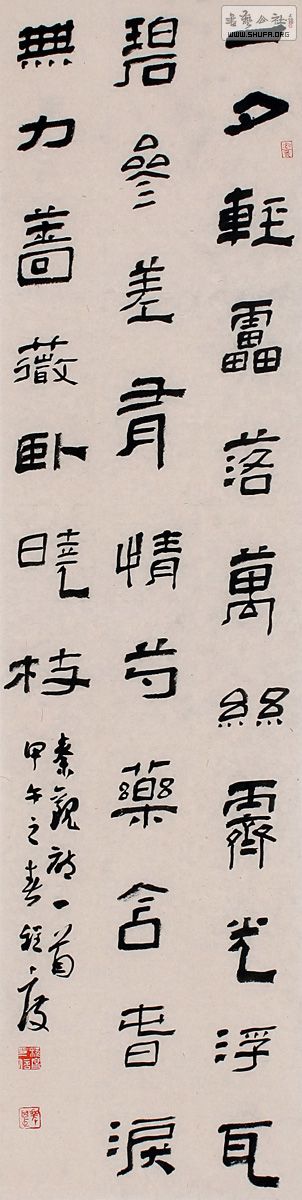 書藝公社
WWW.SHUFA.ORG
一夕輕靁落萬絲霽光浮瓦
碧參差有情芍藥含旾淚
無力薔薇臥曉枝
秦觀詩一首
甲午之春程度